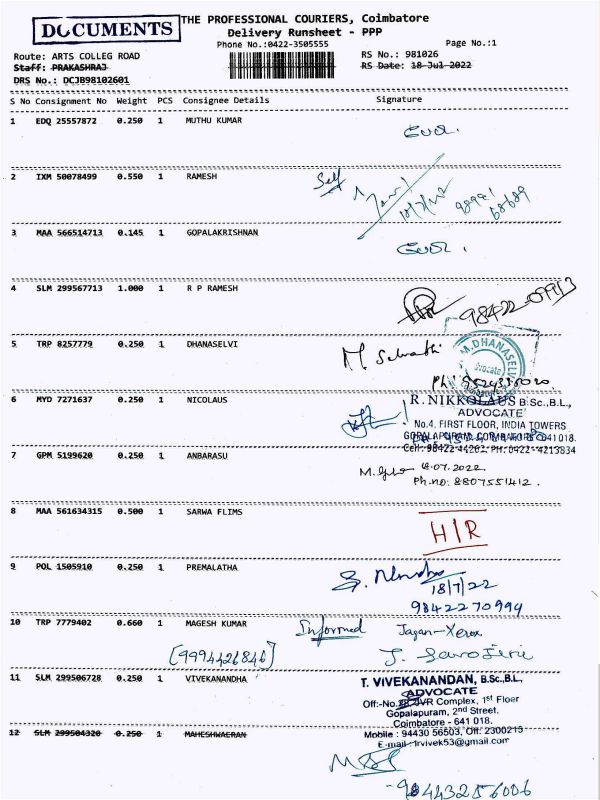 DOCUMENTS
THE PROFESSIONAL COURIERS, Coimbatore
Delivery Runsheet - PPP
Phone No.:0422-3505555
Page No.:1
Route: ARTS COLLEG ROAD
RS No.: 981026
Staff: PRAKASHRAJ
RS Date: 18-Jul-2022
DRS No.: DCJB98102601
S No Consignment No Weight PCS Consignee Details Signature
1 EDQ 25557872 0.250 1 MUTHU KUMAR
2 IXM 50078499 0.550 1 RAMESH
Self
18/7/22
3 MAA 566514713 0.145 1 GOPALAKRISHNAN
4 SLM 299567713 1.000 1 R P RAMESH
98422-09913
5 TRP 8257779 0.250 1 DHANASELVI
M. DHANASELVI
Advocate
6 MYD 7271637 0.250 1 NICOLAUS
R. NIKKOLAUS B.Sc.,B.L.,
ADVOCATE
No.4, FIRST FLOOR, INDIA TOWERS
GOPALAPURAM, COIMBATORE 641018.
Cell: 98422 44262, PH: 0422-4213834
7 GPM 5199620 0.250 1 ANBARASU
18.07.2022
Ph.no: 8807551412.
8 MAA 561634315 0.500 1 SARWA FLIMS
H/R
9 POL 1505910 0.250 1 PREMALATHA
18/7/22
9842270994
10 TRP 7779402 0.660 1 MAGESH KUMAR
Informed Jagan-Xerox
[9994426846] J. Saro
11 SLM 299506728 0.250 1 VIVEKANANDHA
T. VIVEKANANDAN, B.Sc.,B.L.,
ADVOCATE
Complex, 1st Floor
Gopalapuram, 2nd Street,
Coimbatore - 641 018.
Mobile : 94430 56503, Off: 2300215
E-mail : lrvivek53@gmail.com
12 SLM 299504320 0.250 1 MAHESHWAERAN
-94443256006